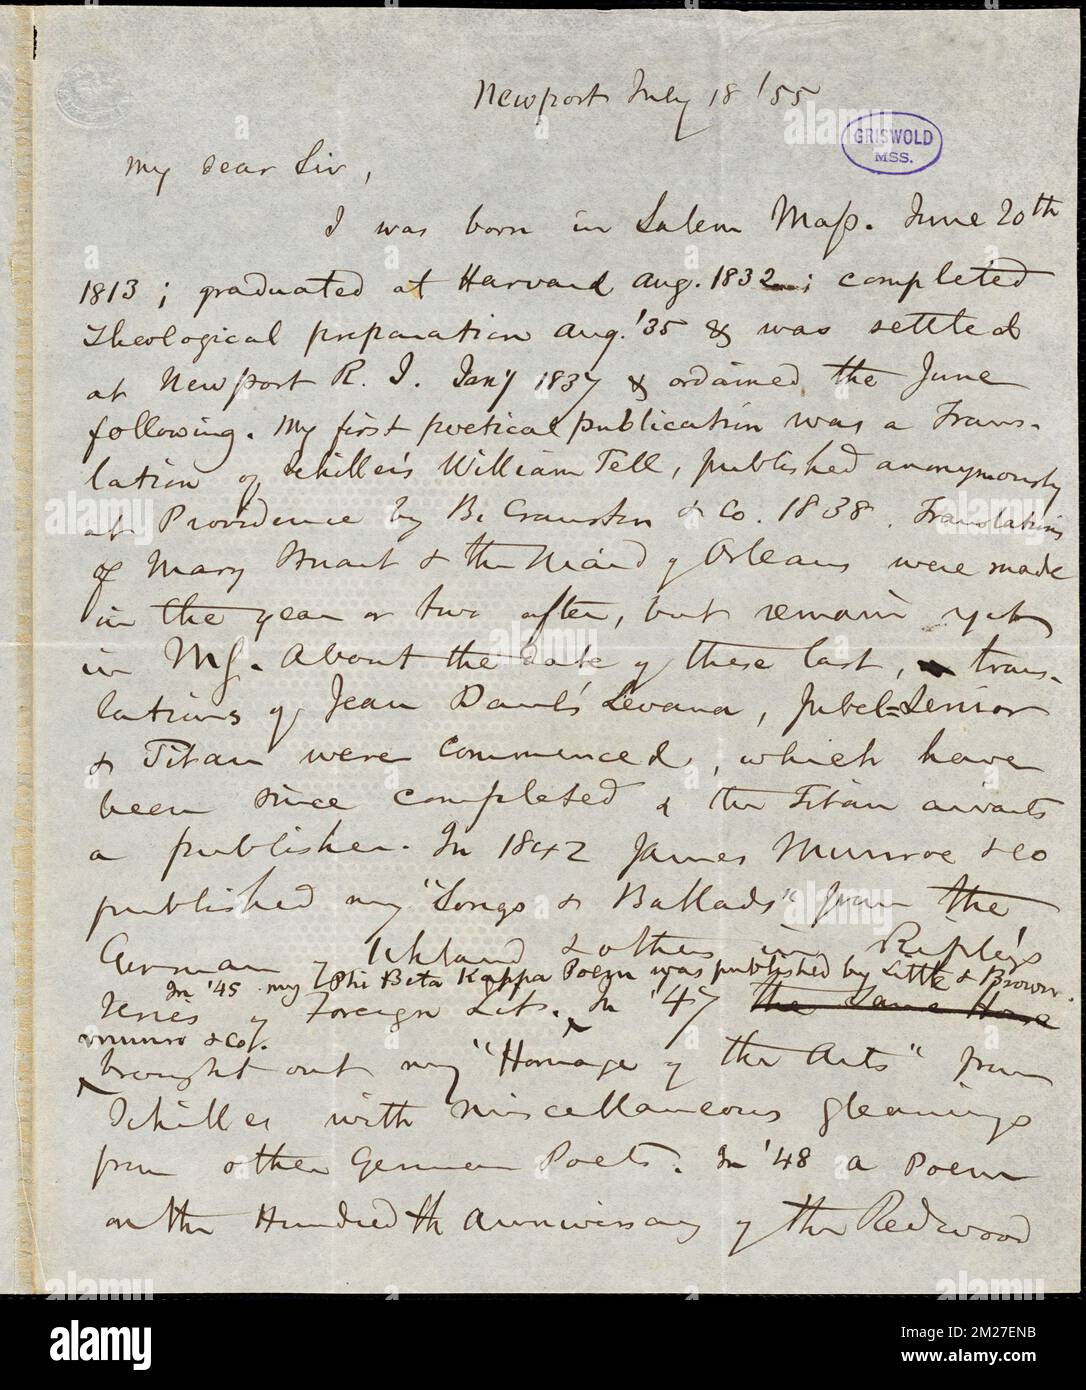 Newport July 18 '55
GRISWOLD
MSS.
My dear Sir,
I was born in Salem Mass. June 20th
1813; graduated at Harvard Aug. 1832; completed
Theological preparation Aug. '35 & was settled
at Newport R. I. Jan'y 1837 & ordained the June
following. My first poetical publication was a Trans-
lation of Schiller's William Tell, published anonymously
at Providence by B. Cranston & Co. 1838. Translations
of Mary Stuart & the Maid of Orleans were made
in the year or two after, but remain yet
in MS. About the date of these last, trans-
lations of Jean Paul's Levana, Jubel=Senior
& Titan were commenced, which have
been since completed & the Titan awaits
a publisher. In 1842 James Munroe & Co
published my "Songs & Ballads" from the
German of Uhland & others in Ripley's
In '45 my Phi Beta Kappa Poem was published by Little & Brown.
Series of Foreign Lit. In '47 the Same House
Munroe & Co.
brought out my "Homage of the Arts" from
Schiller with miscellaneous gleanings
from other German Poets. In '48 a Poem
on the Hundredth Anniversary of the Redwood
alamy
Image ID: 2M27ENB
www.alamy.com